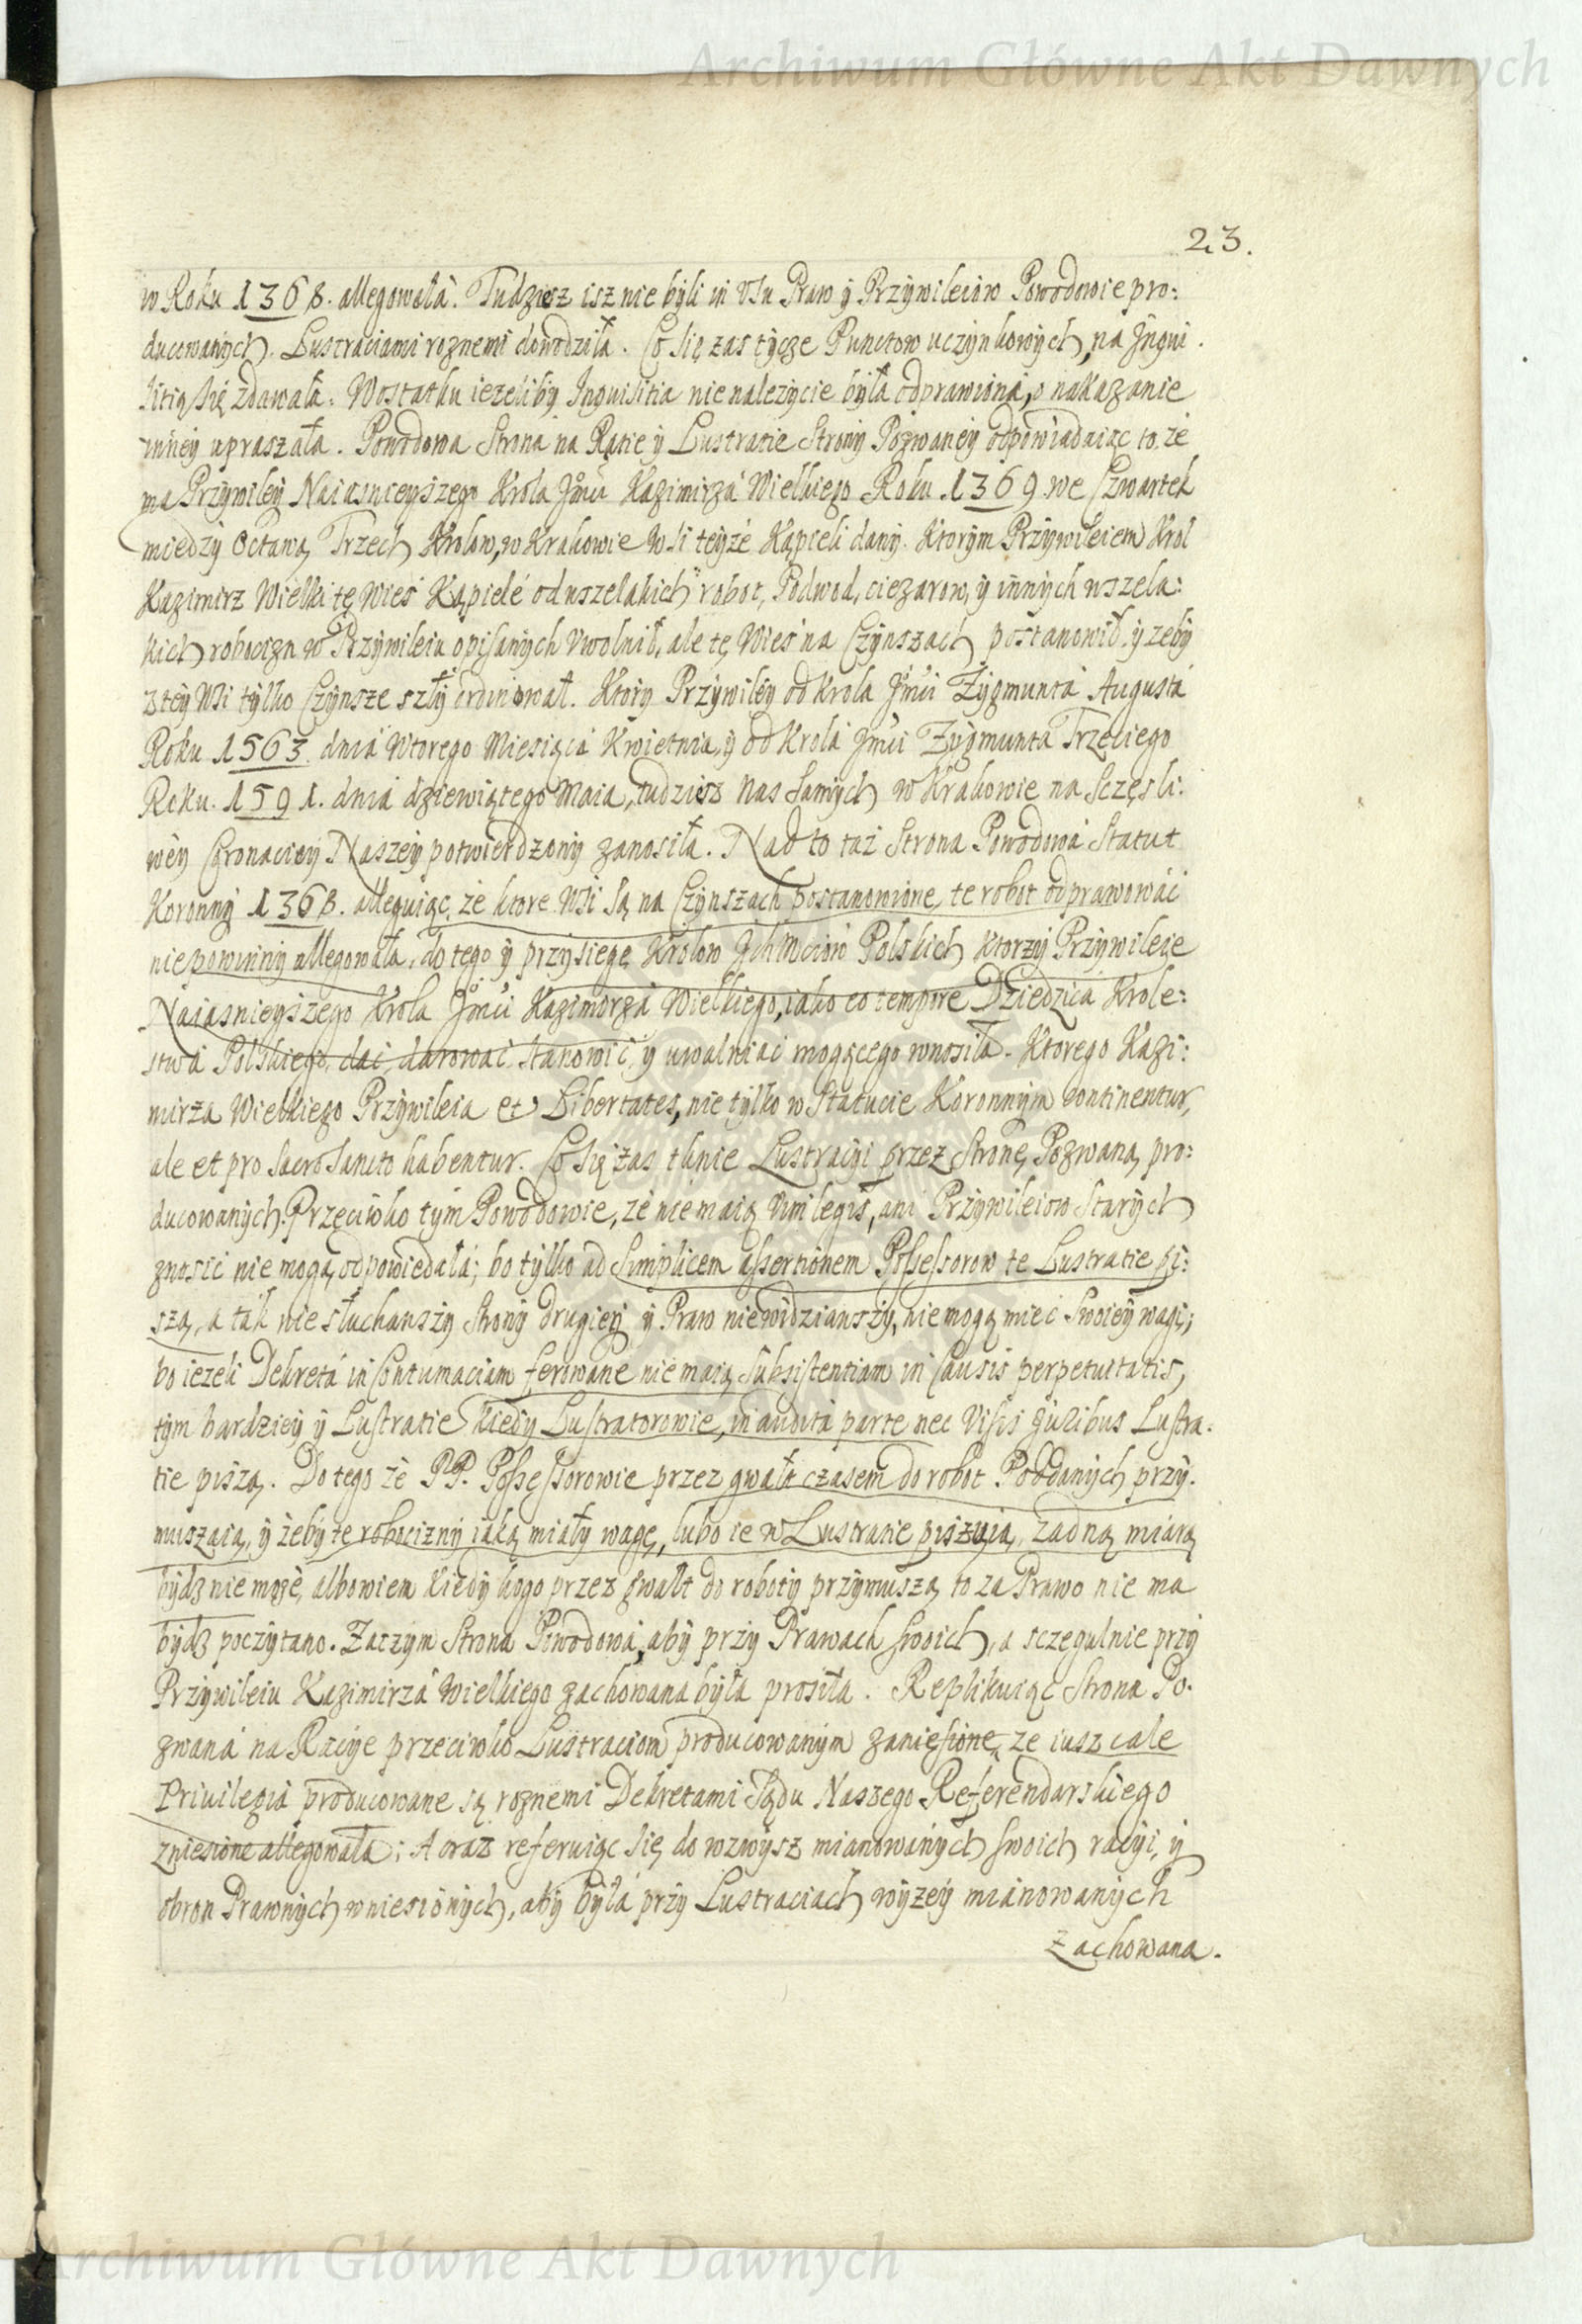 Archiwum Główne Akt Dawnych
23.
w Roku 1368. allegowała. Tudziesz isz nie byli in Usu Praw ÿ Przÿwileiow Powodowie pro:
ducowanÿch. Lustraciami roznemi dowodziła. Co się zas tÿcze Punctow uczÿnkowÿch, na Inqui.
sitią się zdawała. Wostatku iezelibÿ Inquisitia nie nalezÿcie bÿła odprawiona, o nakazanie
inneÿ upraszała. Powodowa Strona na Racie ÿ Lustratie Stronÿ Pozwaneÿ odpowiadaiąc to, ze
ma Przÿwileÿ Naiasnieÿszego Krola Jmci Kazimirza Wielkiego Roku 1369 we Czwartek
miedzÿ Octawą Trzech Krolow, w Krakowie Wsi teÿze Kąpieli danÿ. Ktorÿm Przÿwileiem Krol
Kazimirz Wielki tę Wieś Kąpiele od wszelakich robot, Podwod, ciezarow, ÿ innÿch wszela:
kich robocizn w Przÿwileiu opisanÿch Uwolnił, ale tę Wieś na Czÿnszach postanowił, ÿ zebÿ
z teÿ Wsi tÿlko Czÿnsze szłÿ ordinował. Ktorÿ Przÿwileÿ od Krola Jmci Zÿgmunta Augusta
Roku 1563. dnia Wtorego Miesiąca Kwietnia, ÿ od Krola Jmci Zÿgmunta Trzeciego
Roku. 1591. dnia dziewiątego Maia, tudziesz Nas Samÿch w Krakowie na Sczęsli:
weÿ Coronacieÿ Naszeÿ potwierdzonÿ zanosiła. Nad to taż Strona Powodowa Statut
Koronnÿ 1368. alleguiąc, że ktore Wsi są na Czÿnszach postanowione, te robot odprawować
niepowinnÿ allegowała, do tego ÿ przÿsiegę Krolow Ichmciow Polskich ktorzÿ Przÿwileie
Naiasnieÿszego Krola Jmci Kazimirza Wielkiego, iako eo tempore Dziedzica Krole:
stwa Polskiego, dać, darować, Stanowić, ÿ uwalniać mogącego wnosiła. Ktorego Kazi:
mirza Wielkiego Przÿwileia et Libertates, nie tÿlko w Statucie Koronnÿm continentur,
ale et pro Sacro Sancto habentur. Co się zas tknie Lustracÿi przez Stronę Pozwaną pro:
ducowanÿch. Przeciwko tÿm Powodowie, ze nie maią Vim legis, ani Przÿwileiow Starÿch
znosić nie mogą odpowiedała; bo tÿlko ad Simplicem assertionem Possessorow te Lustratie pi:
szą, a tak nie słuchawszÿ Stronÿ drugieÿ ÿ Praw niewidziawszÿ, niemogą mieć Swoieÿ wagi;
bo iezeli Dekreta in Contumaciam ferowane nie maią Subsistentiam in Causis perpetuitatis,
tÿm bardzieÿ ÿ Lustratie kiedÿ Lustratorowie, inaudita parte nec Visis Juribus Lustra.
tie piszą. Do tego że PP. Possessorowie przez gwałt czasem do robot Poddanÿch przÿ.
muszaią, ÿ żebÿ te robociznÿ iaką miałÿ wagę, lubo ie w Lustratie piszuią, zadną miarą
bÿdz nie moze, albowiem kiedÿ kogo przez gwałt do robotÿ przÿmuszą to za Prawo nie ma
bÿdz poczÿtano. Zaczÿm Strona Powodowa, abÿ przÿ Prawach swoich, a sczegulnie przÿ
Przÿwileiu Kazimirza Wielkiego zachowana bÿła prosiła. Replikuiąc Strona Po.
zwana na Racÿe przeciwko Lustraciom producowanÿm zaniesione, ze iusz cale
Privilegia producowane są roznemi Dekretami Sądu Naszego Referendarskiego
zniesione allegowała; A oraz referuiąc się do wzwÿsz mianowanÿch swoich racÿi, ÿ
obron Prawnÿch wniesionÿch, abÿ bÿła przÿ Lustraciach wÿzeÿ mianowanÿch
zachowana.
Archiwum Główne Akt Dawnych